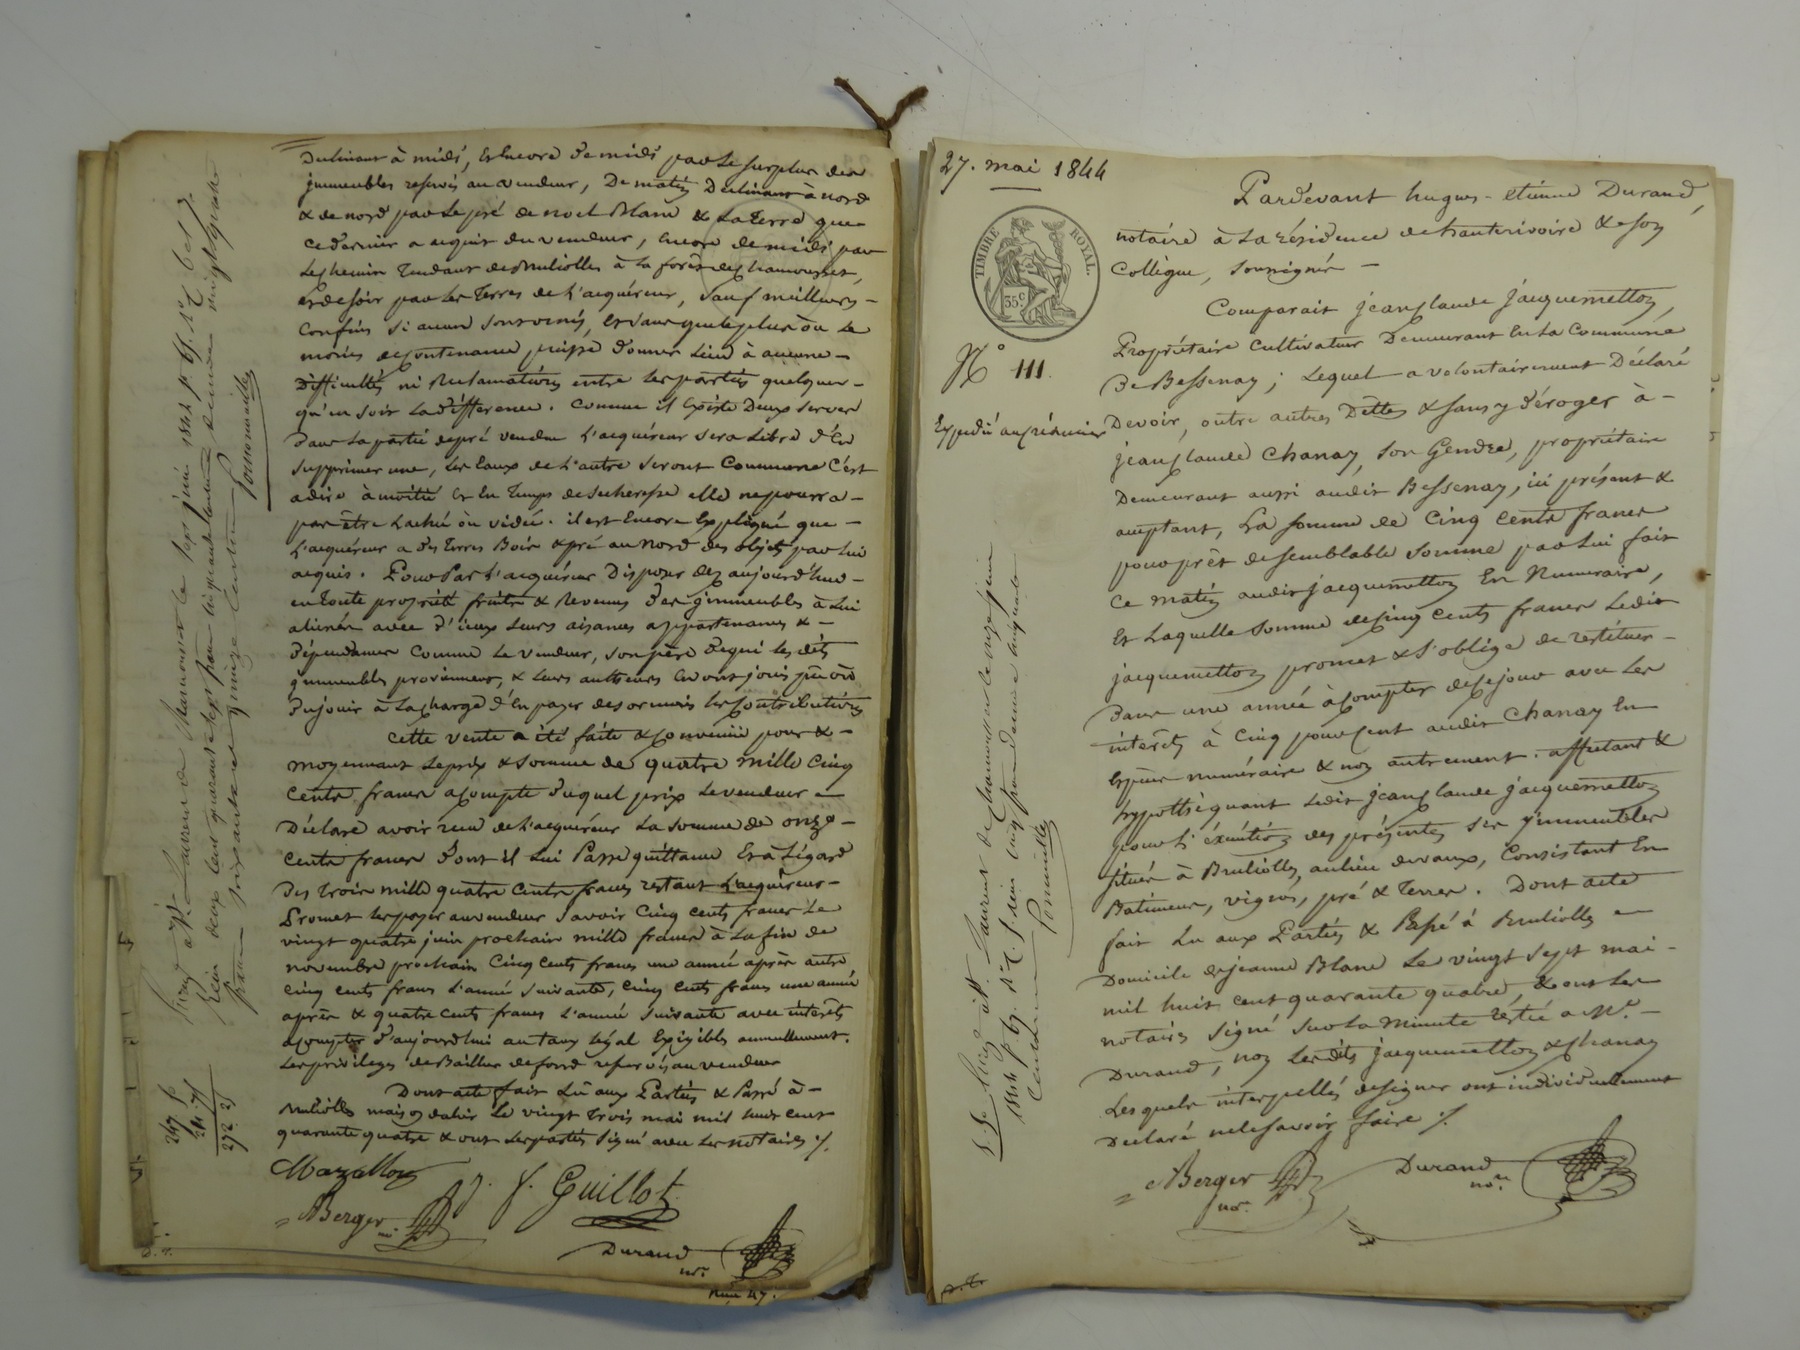 Declinant à midi, et Encore de midi par le surplus des
immeubles reservés au vendeur, De matin Declinant à nord
& de nord par le pré de noel Blanc & la terre que
ce dernier a acquis du vendeur, Encore de midi par
le chemin Tendant de Brulliolles à la forêt de chamousset,
et de soir par les terres de l'acquéreur, sauf meilleurs
confins si aucun sont venus, et sans que le plus ou le
moins de contenance puisse donner Lieu à aucune
Difficultés ni Reclamations entre les parties quelque
qu'en soit la différence. Comme il Existe Deux serves
Dans la partie de pré vendue l'acquéreur sera Libre d'En
supprimer une, les Eaux de l'autre seront Commune C'est
adire à moitié et En Temps de secheresse elle ne pourra
pas être Lachée ou vidée. il est Encore Expliqué que
L'acquéreur a des Terres Bois & pré au nord des objets par lui
acquis. Pour Par l'acquéreur Disposer dez aujourd'hui
en toute propriété fruits & Revenus Des immeubles à Lui
alienés avec d'iceux leurs aisances appartenances &
Dépendances Comme Le vendeur, son père de qui les dits
immeubles proviennent, & leurs autheurs En ont joui pû ou
Du jouir à la charge d'En payer desormais les Contributions
Cette vente a été faite & Convenue pour &
moyennant le prix & somme de quatre mille Cinq
Cents francs acompte duquel prix Le vendeur
Déclare avoir recu de l'acquéreur La somme de onze
Cents francs dont il Lui Passe quittance Et à Légard
Des trois mille quatre Cents francs restant L'acquéreur
Promet les payer au vendeur savoir Cinq cents francs Le
vingt quatre juin prochain mille francs à la fin de
novembre prochain Cinq Cents francs une année après autre
Cinq cents francs l'année suivante, Cinq Cents francs une année
après & quatre cents francs l'année suivante avec intérêts
acompter d'aujourd'hui au taux Légal Exigibles annuellement.
Les privileges de Bailleur de fond reservés au vendeur
Dont acte fait Lû aux Parties & Passé à
Brulliolles maison dahir Le vingt Trois mai mil huit cent
quarante quatre & ont Les parties signé avec Les notaires ./.
Mazallon
J. F. Guillot
Berger
Durand
nore
247 f
24.75
272.25
27. mai 1844
TIMBRE ROYAL.
35c
No 111.
Expedié au créancier
Pardevant hugues-etienne Durand,
notaire à La résidence de hauterivoire & son
Collègue, soussignés
Comparait jean Claude jacquemetton,
Propriétaire Cultivateur Demeurant En La Commune
De Bessenay; Lequel a volontairement Déclaré
Devoir, outre autres Dettes & sans y déroger à
jean Claude Chanay, son Gendre, propriétaire
Demeurant aussi audit Bessenay, ici présent &
acceptant, La somme de Cinq Cents francs
pour prêt de semblable somme par Lui fait
Ce matin audit jacquemetton En Numeraire,
Et Laquelle somme de Cinq Cents francs Ledit
jacquemetton promet & s'oblige de restituer
Dans une année à Compter de ce jour avec Les
intérêts à Cinq pour Cent audit Chanay En
Espèces numéraire & non autrement. affectant &
hypothéquant Ledit jean Claude jacquemetton
pour l'exécution des présentes ses immeubles
situés à Brulliolles, au lieu de vaux, Consistant En
Batiments, vignes, pré & Terres. Dont acte
fait Lu aux Parties & Passé à Brulliolles
Domicile de jeanne Blanc Le vingt sept mai
mil huit cent quarante quatre, & ont Les
notaires signé sur La Minute restée a Me.
Durand, non Lesdits jacquemetton & Chanay
Les quels interpellés de signer ont individuellement
Declaré ne le savoir faire ./.
Berger
nore.
Durand
nore.